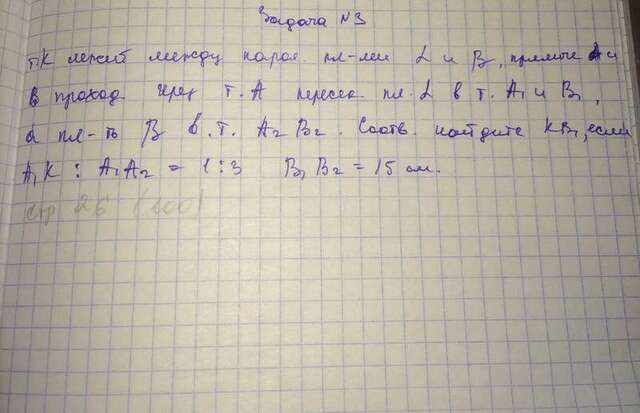 Задача №3
т.К лежит между парал. пл-ми α и β, прямые а и
в проход. через т. А пересек. пл. α в т. А₁ и В₁,
а пл-ть β в т. А₂ В₂. Соотв. найдите КВ₁, если
А₁К : А₁А₂ = 1 : 3 В₁В₂ = 15 см.
стр 26 (100)